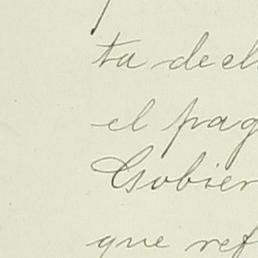 ta decl
el pag
Gobier
que ref